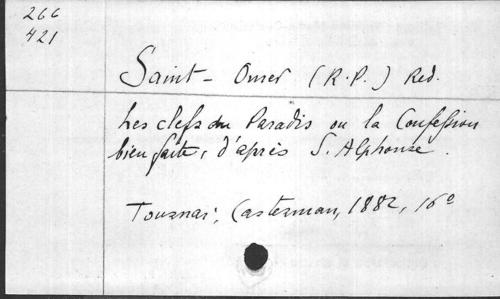 266
421
Saint-Omer (R.P.) Red.
Les clefs du Paradis ou la Confession
bien faite, d'après S. Alphonse.
Tournai; Casterman, 1882, 16º